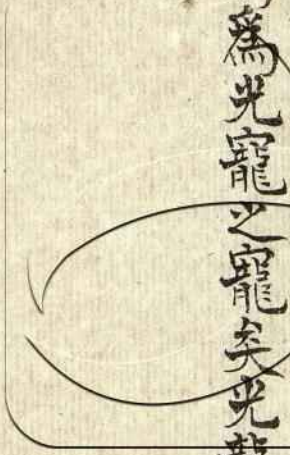 爲光寵之寵矣光